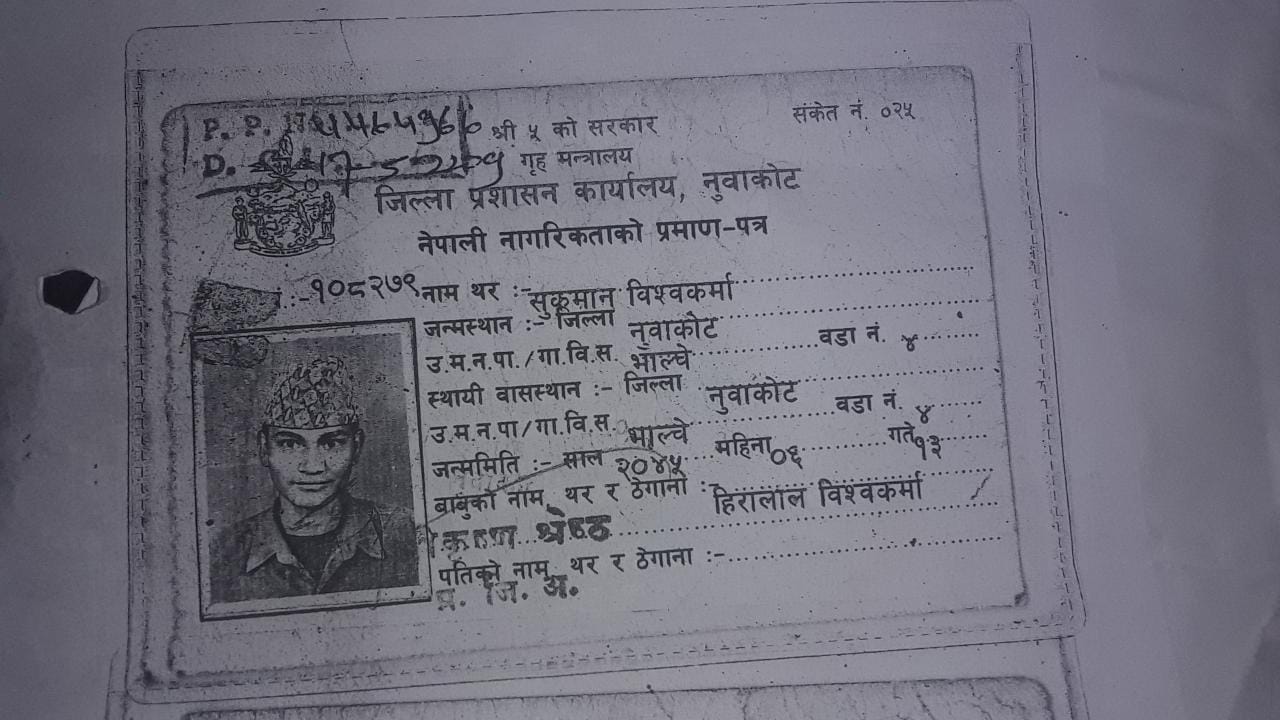 संकेत नं. ०२५
P. P.
श्री ५ को सरकार
D.
गृह मन्त्रालय
जिल्ला प्रशासन कार्यालय, नुवाकोट
नेपाली नागरिकताको प्रमाण-पत्र
नं.:-१०८२७९ नाम थर :- सुकूमान विश्वकर्मा
जन्मस्थान :- जिल्ला नुवाकोट वडा नं. ४
उ.म.न.पा./गा.वि.स. भाल्चे
स्थायी वासस्थान :- जिल्ला नुवाकोट वडा नं. ४
उ.म.न.पा/गा.वि.स. भाल्चे
जन्ममिति :- साल २०४५ महिना ०६ गते १३
बाबुको नाम, थर र ठेगाना :- हिरालाल विश्वकर्मा
श्रेष्ठ
पतिको नाम, थर र ठेगाना :-
प्र. जि. अ.